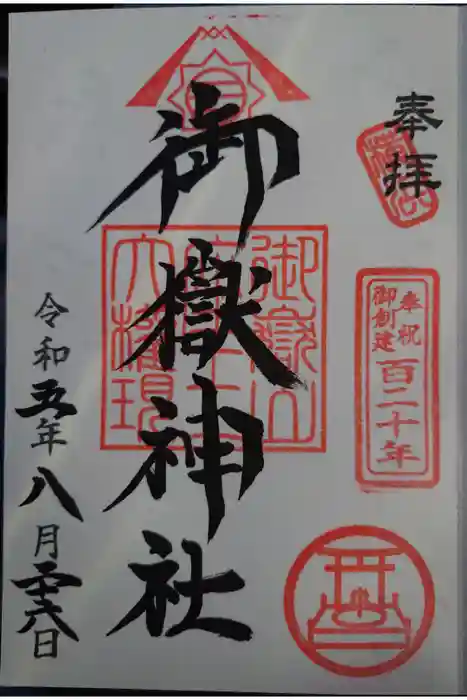 奉拝
奉祝
御創建
百二十年
御嶽神社
令和五年八月二十六日